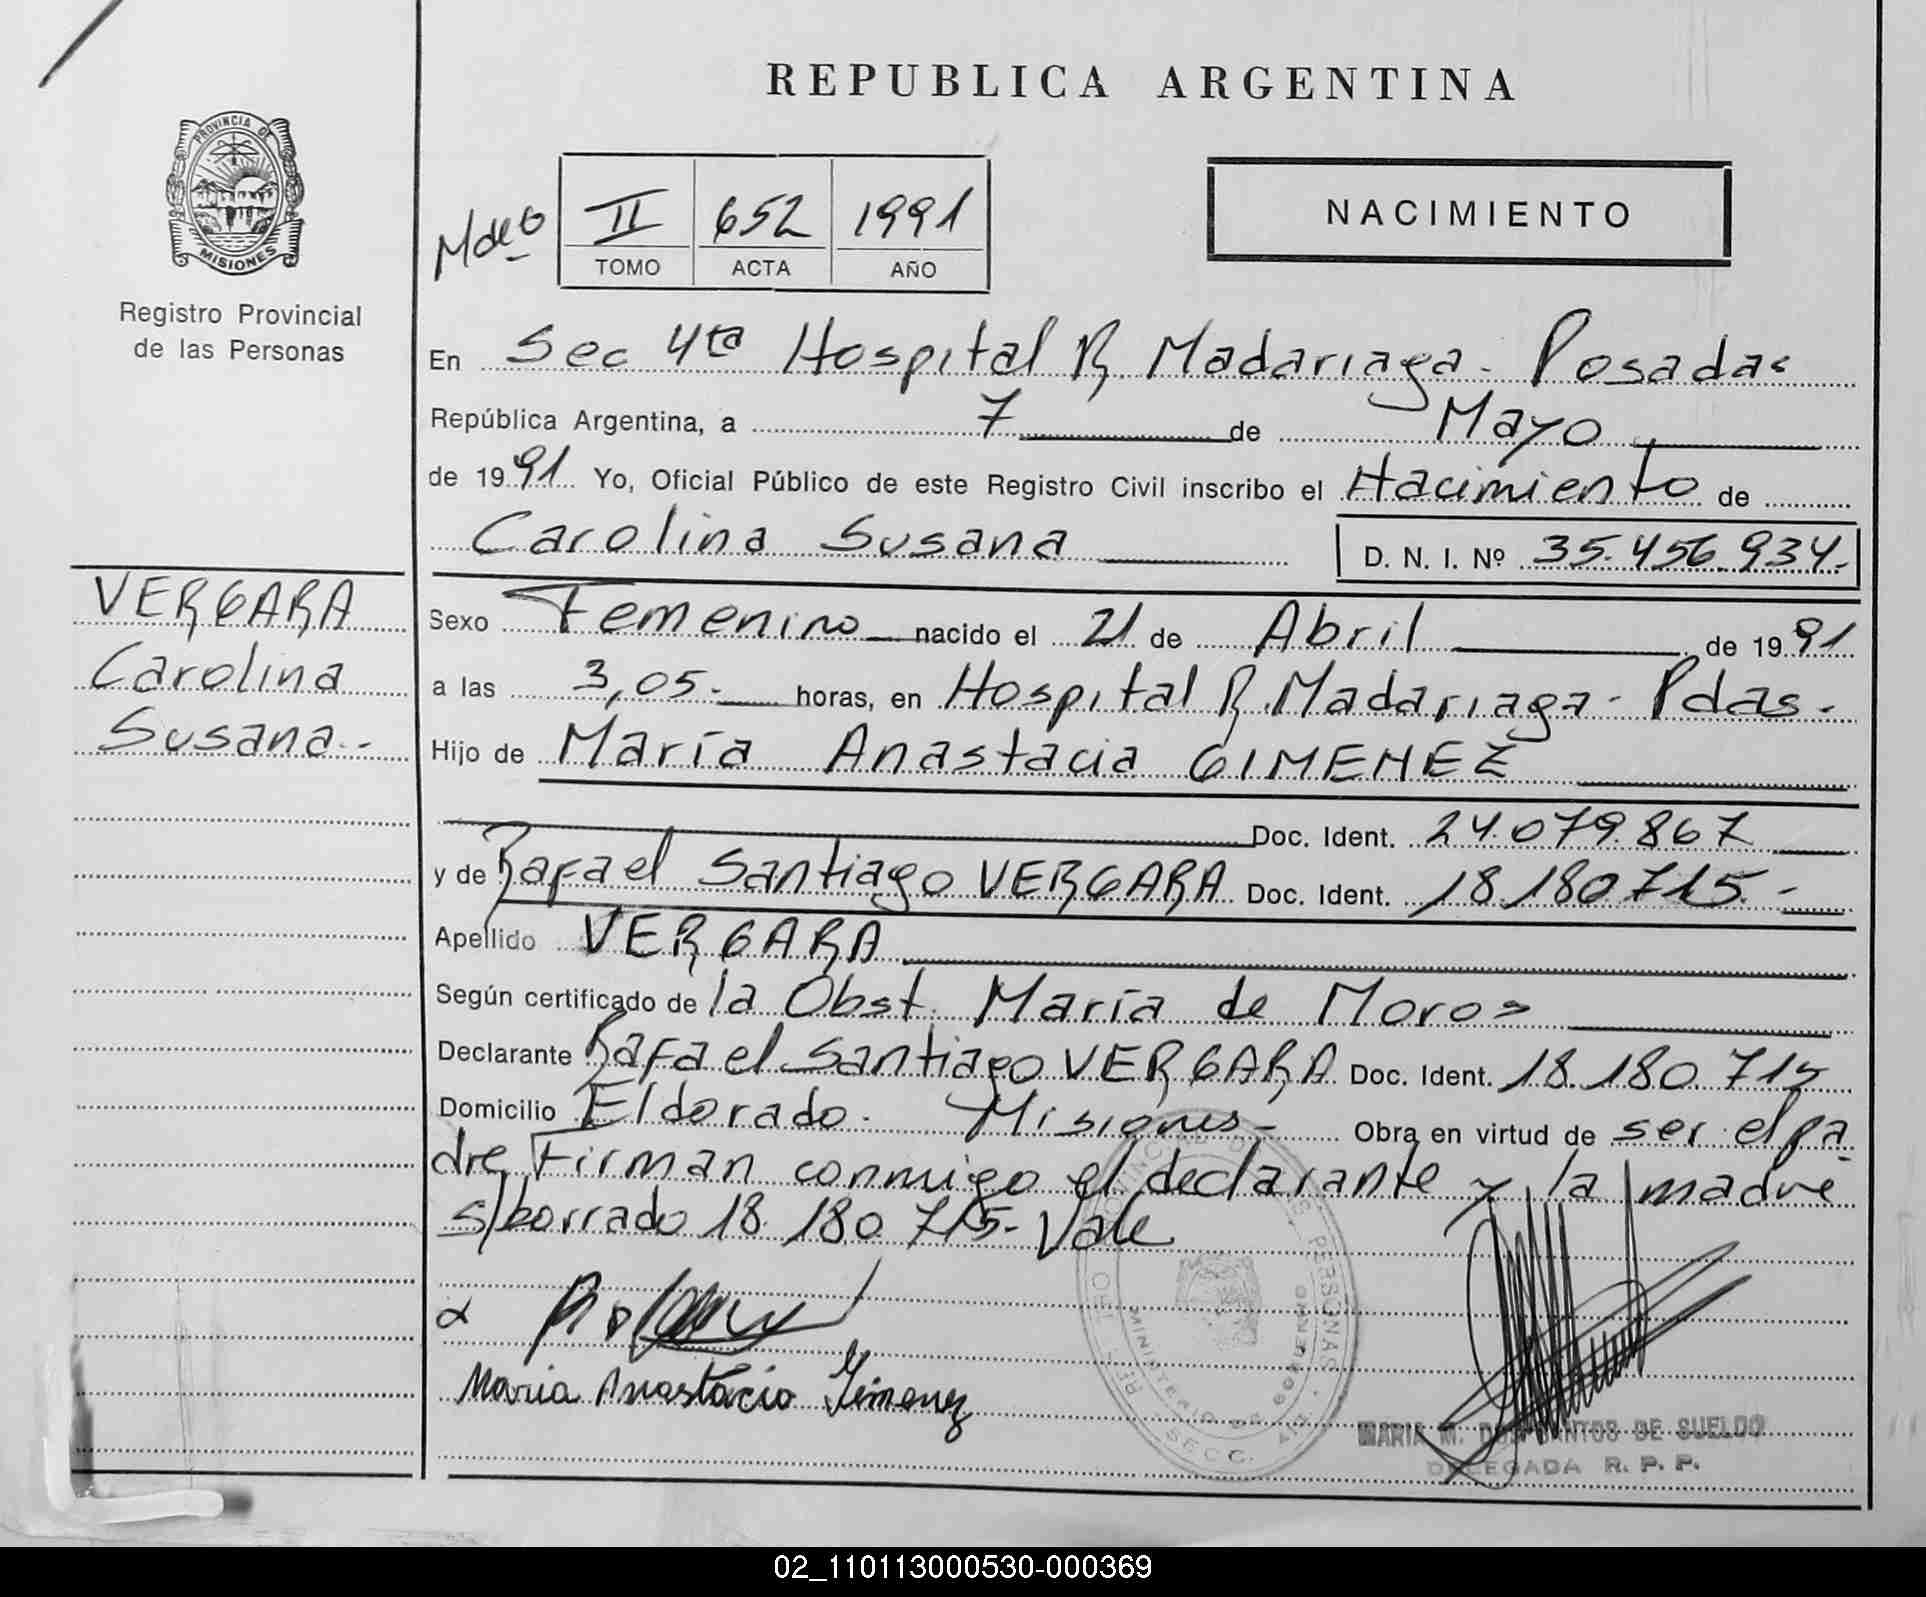 REPUBLICA ARGENTINA
PROVINCIA DE
MISIONES
Registro Provincial
de las Personas
II 652 1991
TOMO ACTA AÑO
NACIMIENTO
En Sec 4ta Hospital R Madariaga - Posadas
República Argentina, a 7 de Mayo
de 1991 Yo, Oficial Público de este Registro Civil inscribo el Nacimiento de
Carolina Susana D. N. I. Nº 35.456.934.-
VERGARA
Carolina
Susana.-
Sexo Femenino nacido el 21 de Abril de 1991
a las 3,05.- horas, en Hospital R. Madariaga - Pdas.-
Hijo de María Anastacia GIMENEZ
Doc. Ident. 24.079.867
y de Rafael Santiago VERGARA Doc. Ident. 18.180.715.-
Apellido VERGARA
Según certificado de la Obst. María de Moros
Declarante Rafael Santiago VERGARA Doc. Ident. 18.180.715
Domicilio Eldorado. Misiones.- Obra en virtud de ser el pa
dre Firman conmigo el declarante y la madre
s/borrado 18.180.715.- Vale
Maria Anastacia Gimenez
MINISTERIO DE GOBIERNO
SECC. 4ta
MARIA M. DOS SANTOS DE SUELDO
DELEGADA R. P. P.
02_110113000530-000369